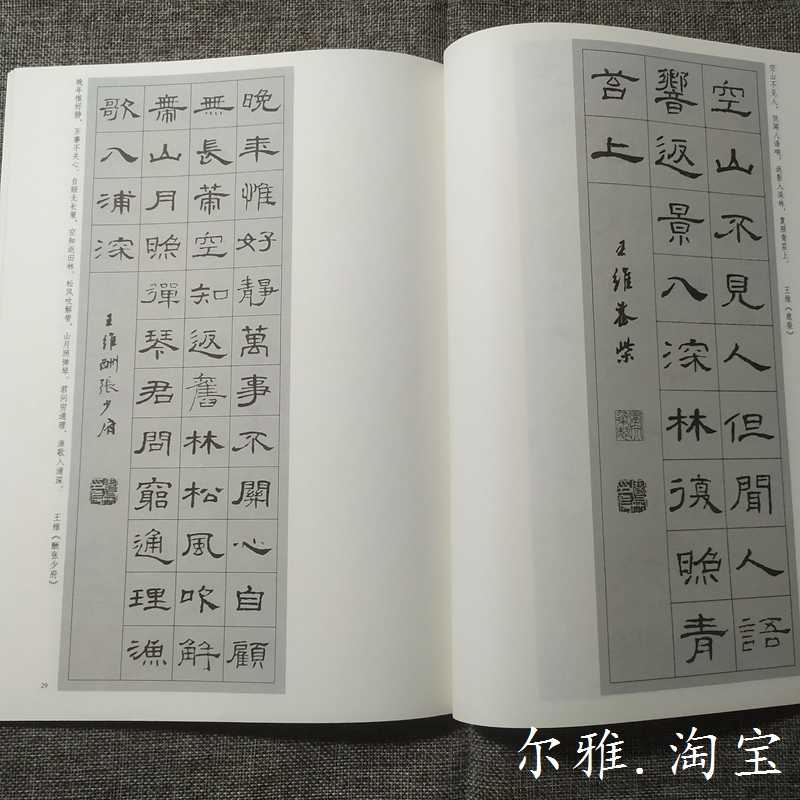 空山不见人，但闻人语响。返影入深林，复照青苔上。 王维《鹿柴》
空山不見人但聞人語
響返景入深林復照青
苔上
王維鹿柴
晚年惟好靜萬事不關心自顧
無長策空知返舊林松風吹解
帶山月照彈琴君問窮通理漁
歌入浦深
王維酬張少府
晚年惟好静，万事不关心。自顾无长策，空知返旧林。松风吹解带，山月照弹琴。君问穷通理，渔歌入浦深。 王维《酬张少府》
29
尔雅.淘宝